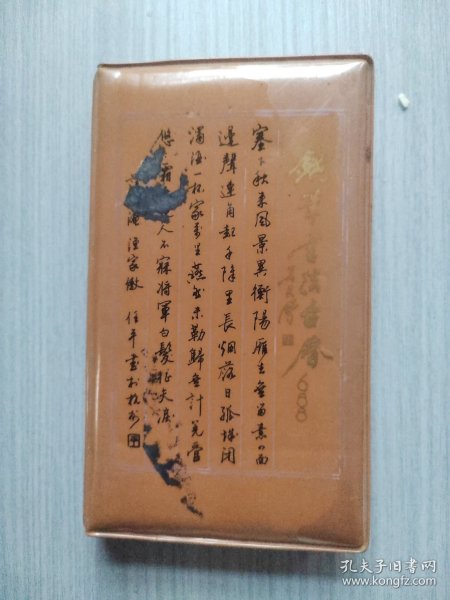 塞下秋来風景異衡陽雁去無留意四面
邊聲連角起千障里長烟落日孤城閉
濁酒一杯家萬里燕然未勒歸無計羌管
悠 霜 人不寐將軍白髮征夫淚
漁家傲 任平書於杭州
孔夫子旧书网
www.kongfz.com